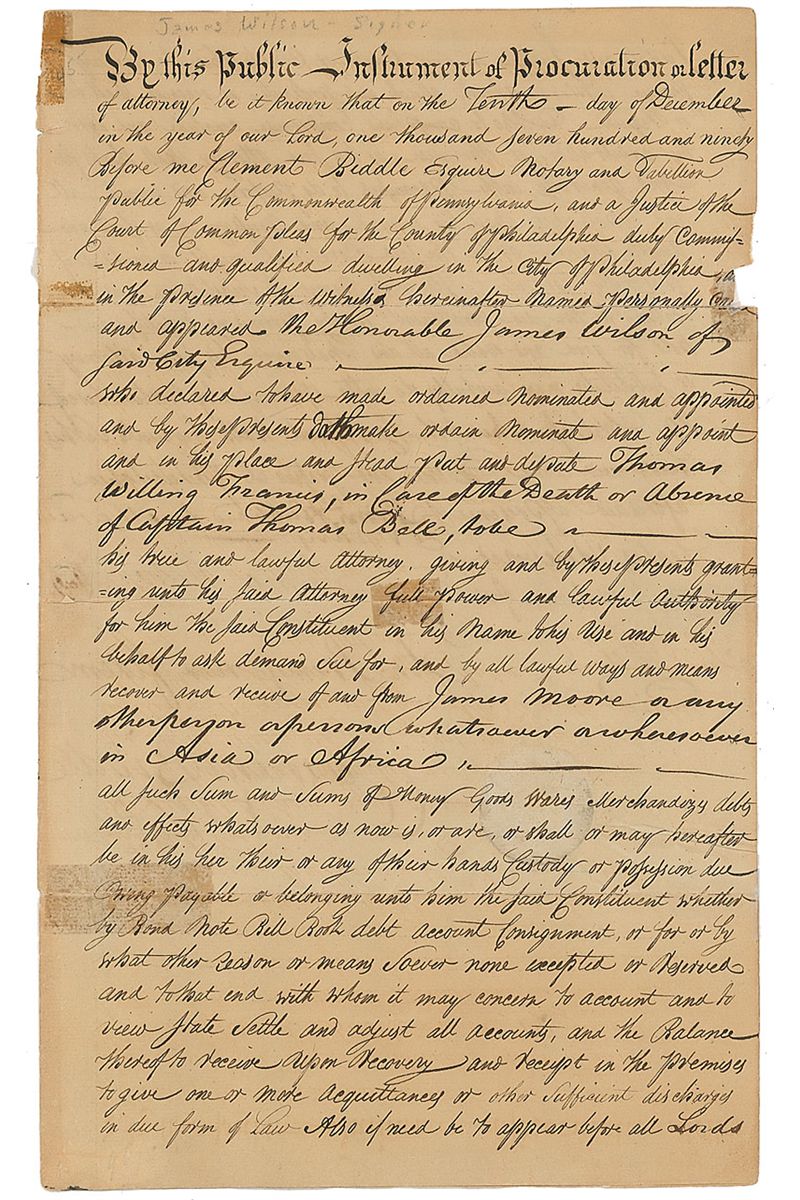 James Wilson - Signer
By this Public Instrument of Procuration or letter
of attorney, be it known that on the Tenth day of December
in the year of our Lord, one thousand seven hundred and ninety
Before me Clement Biddle Esquire Notary and Tabellion
public for the Commonwealth of Pennsylvania, and a Justice of the
Court of Common pleas for the County of Philadelphia duly Commis=
=sioned and qualified dwelling in the City of Philadelphia,
in the presence of the Witness hereinafter Named personally
and appeared the Honorable James Wilson of
said City Esquire
who declared to have made ordained Nominated and appointed
and by these presents doth make ordain Nominate and appoint
and in his place and Stead put and depute Thomas
Willing Francis, in Case of the Death or Absence
of Captain Thomas Bell, to be
his true and lawful Attorney, giving and by these presents grant=
=ing unto his said Attorney full power and lawful Authority
for him the said Constituent in his Name to his Use and in his
behalf to ask demand Sue for, and by all lawful ways and means
recover and receive of and from James Moore or any
other person or persons whatsoever or wheresoever
in Asia or Africa
all such Sum and Sums of Money Goods Wares Merchandizes debts
and effects whatsoever as now is, or are, or shall or may hereafter
be in his her their or any of their hands Custody or possession due
Owing payable or belonging unto him the said Constituent whether
by Bond Note Bill Book debt account Consignment, or for or by
what other reason or means Soever none excepted or Reserved
and to that end with whom it may concern to account and to
view State Settle and adjust all accounts, and the Balance
thereof to receive Upon recovery and receipt in the premises
to give one or more acquittances or other Sufficient discharges
in due form of Law Also if need be to appear before all Lords